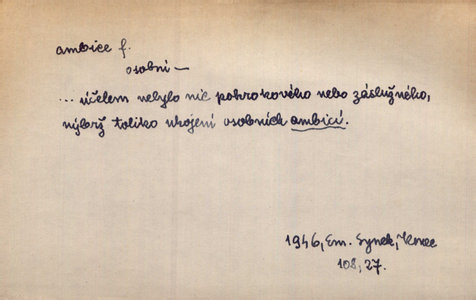 ambice f.
osobní —
... účelem nebylo nic pokrokového nebo záslužného,
nýbrž toliko ukojení osobních ambicí.
1946, Em. Synek, Konec
108, 27.